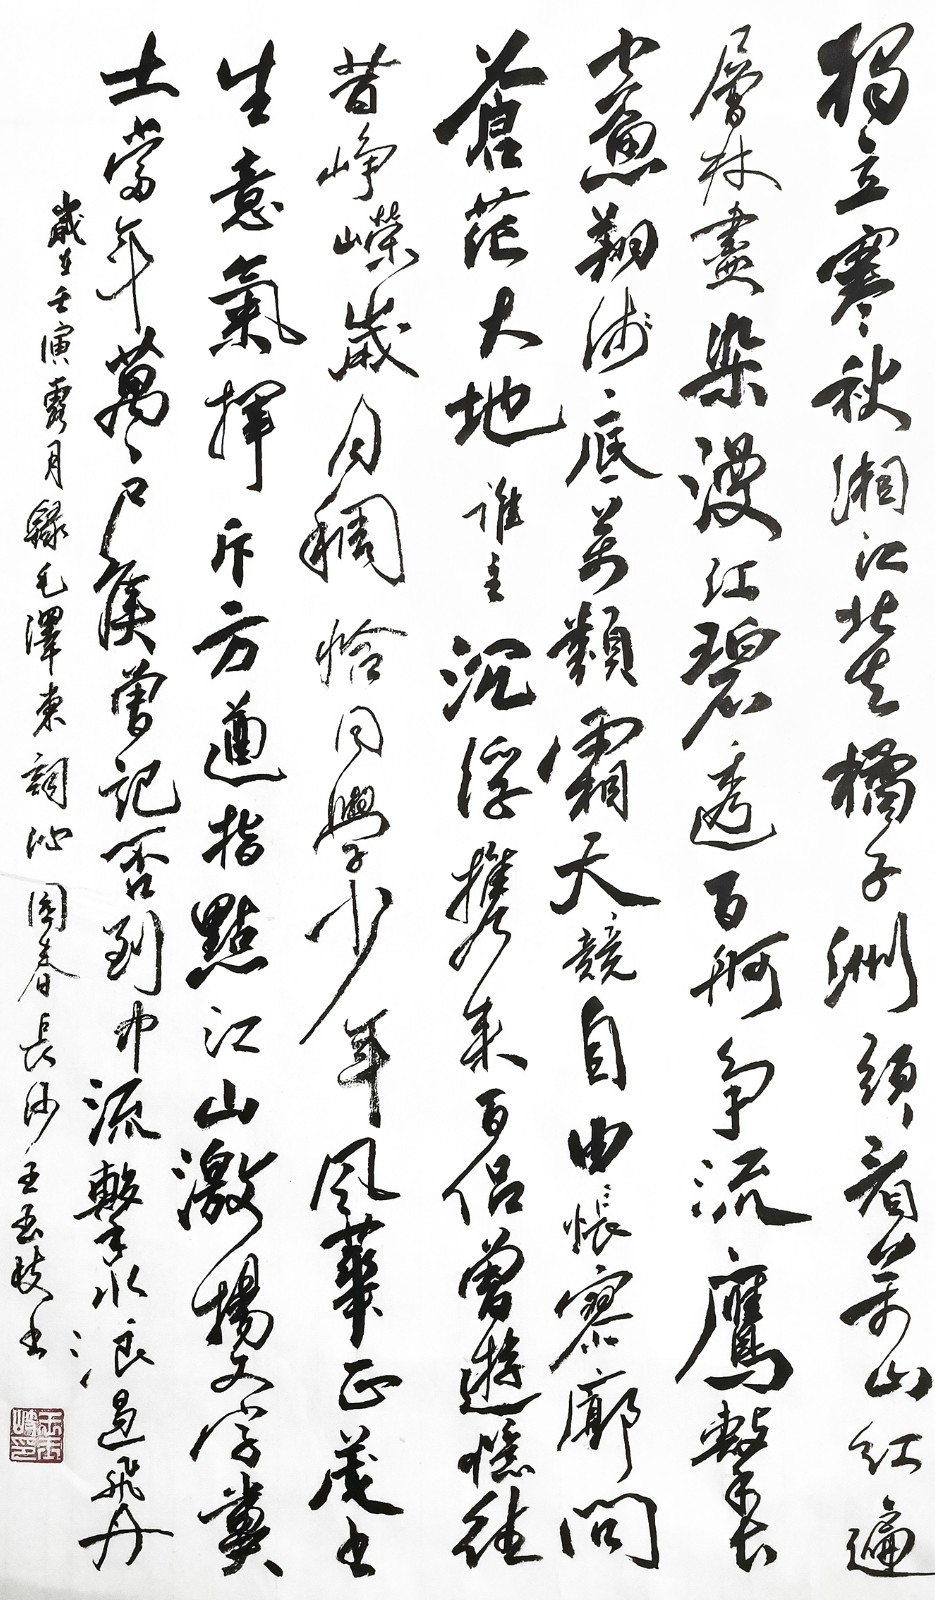 獨立寒秋湘江北去橘子洲頭看萬山紅遍
層林盡染漫江碧透百舸争流鷹擊長
空魚翔淺底萬類霜天競自由悵寥廓問
蒼茫大地誰主沉浮攜來百侣曾遊憶往
昔崢嶸歲月稠恰同學少年風華正茂書
生意氣揮斥方遒指點江山激揚文字糞
土當年萬户侯曾記否到中流擊水浪遏飛舟
歲在壬寅露月録毛澤東詞沁園春長沙王玉書